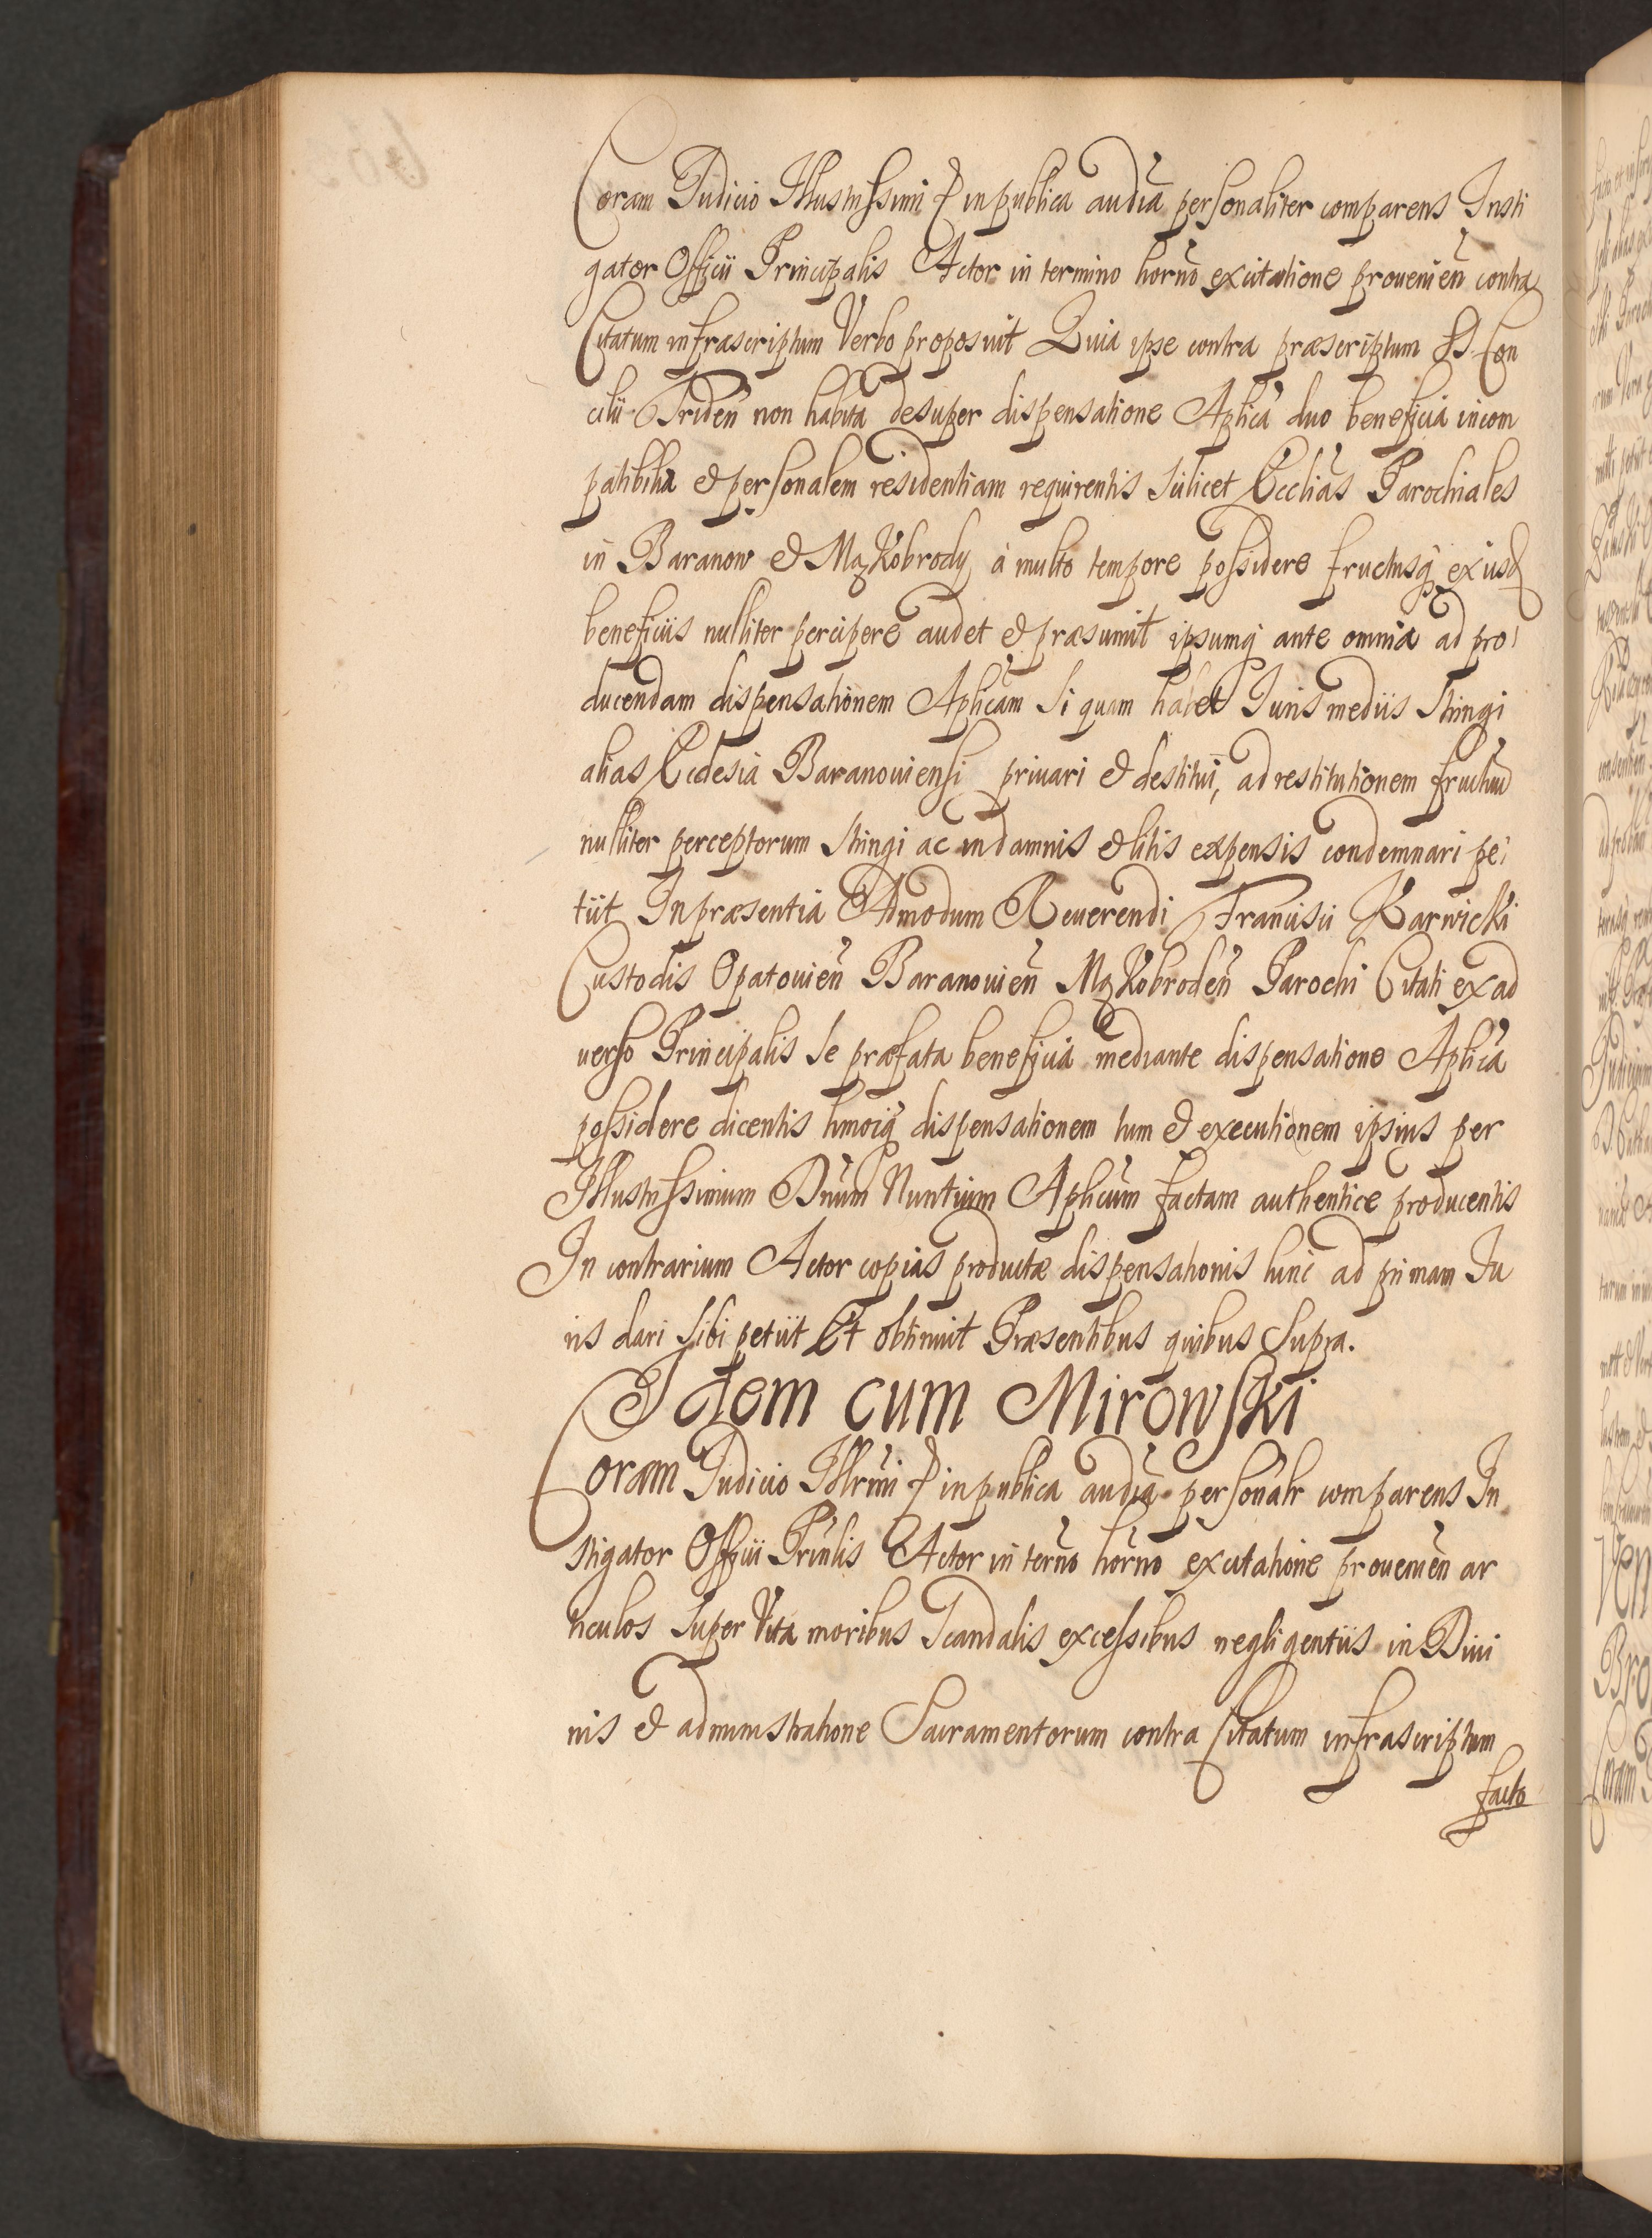 Coram Judicio Illustrissimi & in publica audīa personaliter comparens Insti
gator Officii Principalis Actor in termino horno excitatione prouenien̄ contra
Citatum infrascriptum Verbo proposuit Quia ipse contra præscriptum SS. Con
cilii Triden̄ non habita desuper dispensatione Aplica duo beneficia incom
patibilia et personalem residentiam requirentis scilicet Ecclias Parochiales
in Baranow et Mąkobrody à multo tempore possidere fructusq́ ex iisd
beneficiis nulliter percipere audet et præsumit ipsumq́ ante omnia ad pro
ducendam dispensationem Aplicam si quam habet Juris mediis stringi
alias Ecclesia Baranouiensi priuari et destitui, ad restitutionem fructuū
nulliter perceptorum stringi ac in damnis et litis expensis condemnari pe
tiit In præsentia Admodum Reuerendi Francisci Karwicki
Custodis Opatouien̄ Baranouien̄ Mąkobroden̄ Parochi Citati ex ad
uerso Principalis se præfata beneficia mediante dispensatione Aplica
possidere dicentis hmōiq́ dispensationem tum et executionem ipsius per
Illustrissimum Dn̄um Nuntium Aplicum factam authentice producentis
In contrarium Actor copias productæ dispensationis hinc ad primam Ju
ris dari sibi petiit Et obtinuit Præsentibus quibus Supra.
Idem cum Mirowski
Coram Judicio Illrmi & in publica audīa personalr comparens In
stigator Officii Prinlis Actor in terno horno excitatione prouenien̄ ar
ticulos super Vita moribus Scandalis excessibus negligentiis in Diui
nis et administratione Sacramentorum contra Citatum infrascriptum
facto